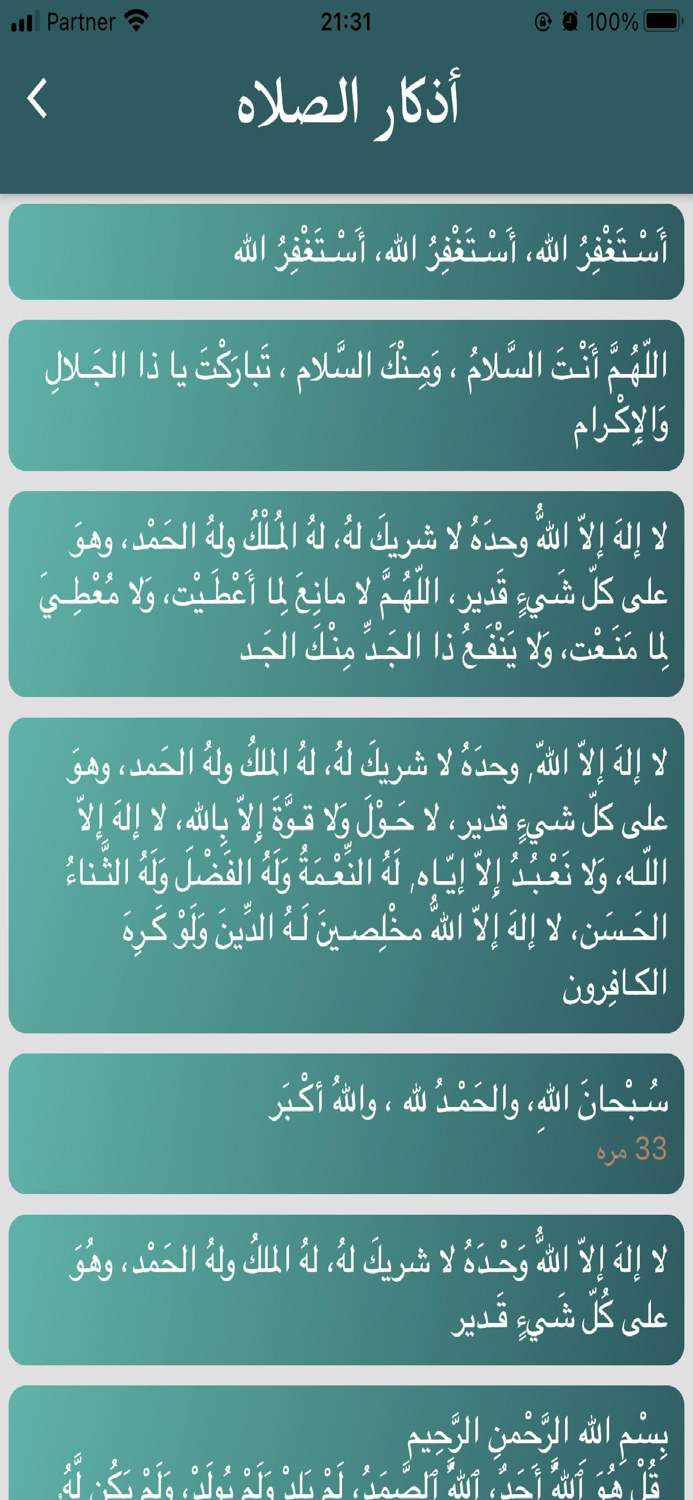 Partner 21:31 100%
أذكار الصلاه
أَسْـتَغْفِرُ الله، أَسْـتَغْفِرُ الله، أَسْـتَغْفِرُ الله
اللّهُـمَّ أَنْـتَ السَّلامُ ، وَمِـنْكَ السَّلام ، تَبارَكْتَ يا ذا الجَـلالِ
وَالإِكْـرام
لا إلهَ إلاّ اللّهُ وحدَهُ لا شريكَ لهُ، لهُ المُـلْكُ ولهُ الحَمْد، وهوَ
على كلّ شَـيءٍ قَدير، اللّهُـمَّ لا مانِعَ لِما أَعْطَـيْت، وَلا مُعْطِـيَ
لِما مَنَـعْت، وَلا يَنْفَـعُ ذا الجَـدِّ مِنْـكَ الجَـد
لا إلهَ إلاّ اللّه, وحدَهُ لا شريكَ لهُ، لهُ الملكُ ولهُ الحَمد، وهوَ
على كلّ شـيءٍ قدير، لا حَـوْلَ وَلا قـوَّةَ إِلاّ بِالله، لا إلهَ إلاّ
اللّـه، وَلا نَعْـبُـدُ إِلاّ إيّـاه, لَهُ النِّعْـمَةُ وَلَهُ الفَضْل وَلَهُ الثَّـناءُ
الحَـسَن، لا إلهَ إلاّ اللّهُ مخْلِصـينَ لَـهُ الدِّينَ وَلَوْ كَـرِهَ
الكـافِرون
سُـبْحانَ اللهِ، والحَمْـدُ لله ، واللهُ أكْـبَر
33 مره
لا إلهَ إلاّ اللّهُ وَحْـدَهُ لا شريكَ لهُ، لهُ الملكُ ولهُ الحَمْد، وهُوَ
على كُلّ شَـيءٍ قَـدير
بِسْمِ الله الرَّحْمنِ الرَّحِيم
قُلْ هُوَ ٱللَّهُ أَحَدٌ، ٱللَّهُ ٱلصَّمَدُ، لَمْ يَلِدْ وَلَمْ يُولَدْ، وَلَمْ يَكُن لَّهُۥ